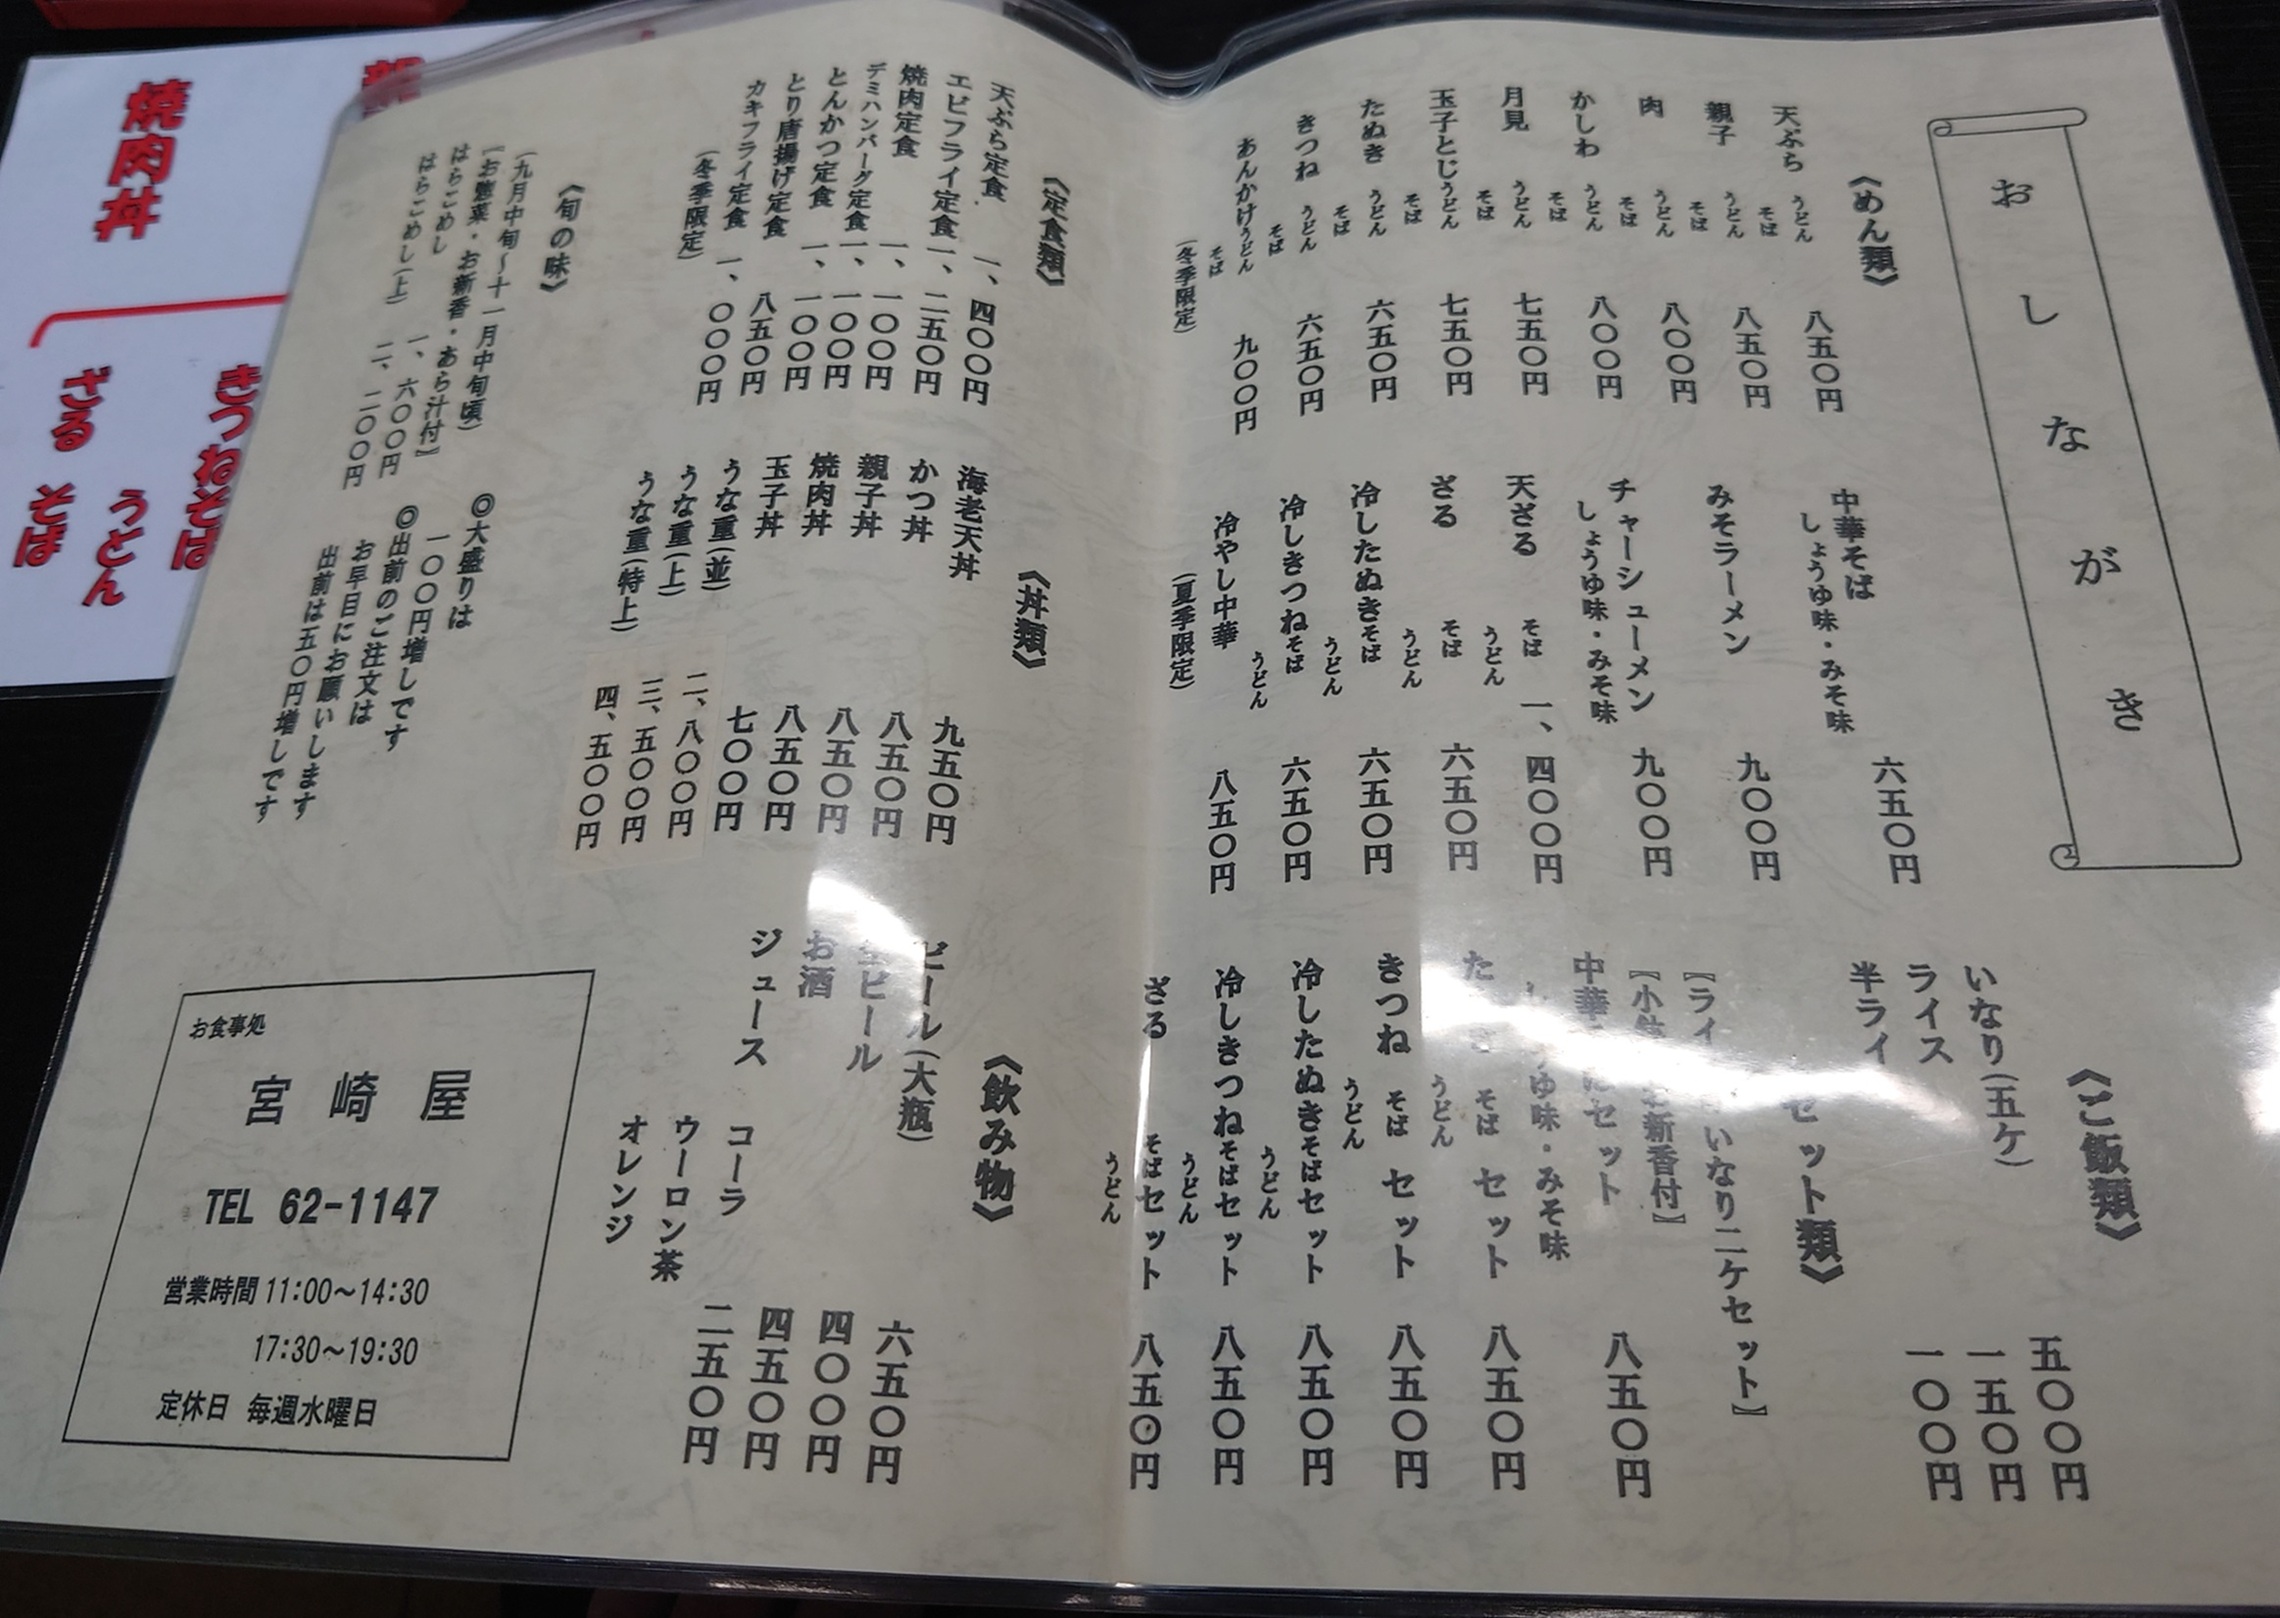 おしながき
《めん類》
天ぷら うどん そば 八五〇円
親子 うどん そば 八五〇円
肉 うどん そば 八〇〇円
かしわ うどん そば 八〇〇円
月見 うどん そば 七五〇円
玉子とじ うどん そば 七五〇円
たぬき うどん そば 六五〇円
きつね うどん そば 六五〇円
あんかけ うどん そば 九〇〇円
(冬季限定)
中華そば 六五〇円
しょうゆ味・みそ味
みそラーメン 九〇〇円
チャーシューメン 九〇〇円
しょうゆ味・みそ味
天ざる そば うどん 一、四〇〇円
ざる そば うどん 六五〇円
冷したぬき そば うどん 六五〇円
冷しきつね そば うどん 六五〇円
冷やし中華 八五〇円
(夏季限定)
《ご飯類》
いなり(五ケ) 五〇〇円
ライス 一五〇円
半ライ 一〇〇円
セット類》
[ライ いなり二ケセット]
[小 新香付]
中華 セット 八五〇円
ゆ味・みそ味
た そば うどん セット 八五〇円
きつね そば うどん セット 八五〇円
冷したぬき そば うどん セット 八五〇円
冷しきつね そば うどん セット 八五〇円
ざる そば うどん セット 八五〇円
《定食類》
天ぷら定食 一、四〇〇円
エビフライ定食 一、二五〇円
焼肉定食 一、一〇〇円
デミハンバーグ定食 一、一〇〇円
とんかつ定食 一、一〇〇円
とり唐揚げ定食 八五〇円
カキフライ定食 一、〇〇〇円
(冬季限定)
《旬の味》
(九月中旬〜十一月中旬頃)
[お惣菜・お新香・あら汁付]
はらこめし 一、六〇〇円
はらこめし(上) 二、二〇〇円
《丼類》
海老天丼 九五〇円
かつ丼 八五〇円
親子丼 八五〇円
焼肉丼 八五〇円
玉子丼 七〇〇円
うな重(並) 二、八〇〇円
うな重(上) 三、五〇〇円
うな重(特上) 四、五〇〇円
◎大盛りは
一〇〇円増しです
◎出前のご注文は
お早目にお願いします
出前は五〇円増しです
《飲み物》
ビール(大瓶) 六五〇円
ビール 四〇〇円
お酒 四五〇円
ジュース 二五〇円
コーラ
ウーロン茶
オレンジ
お食事処
宮崎屋
TEL 62-1147
営業時間 11:00〜14:30
17:30〜19:30
定休日 毎週水曜日
焼肉丼
きつねそば
ざる うどん そば